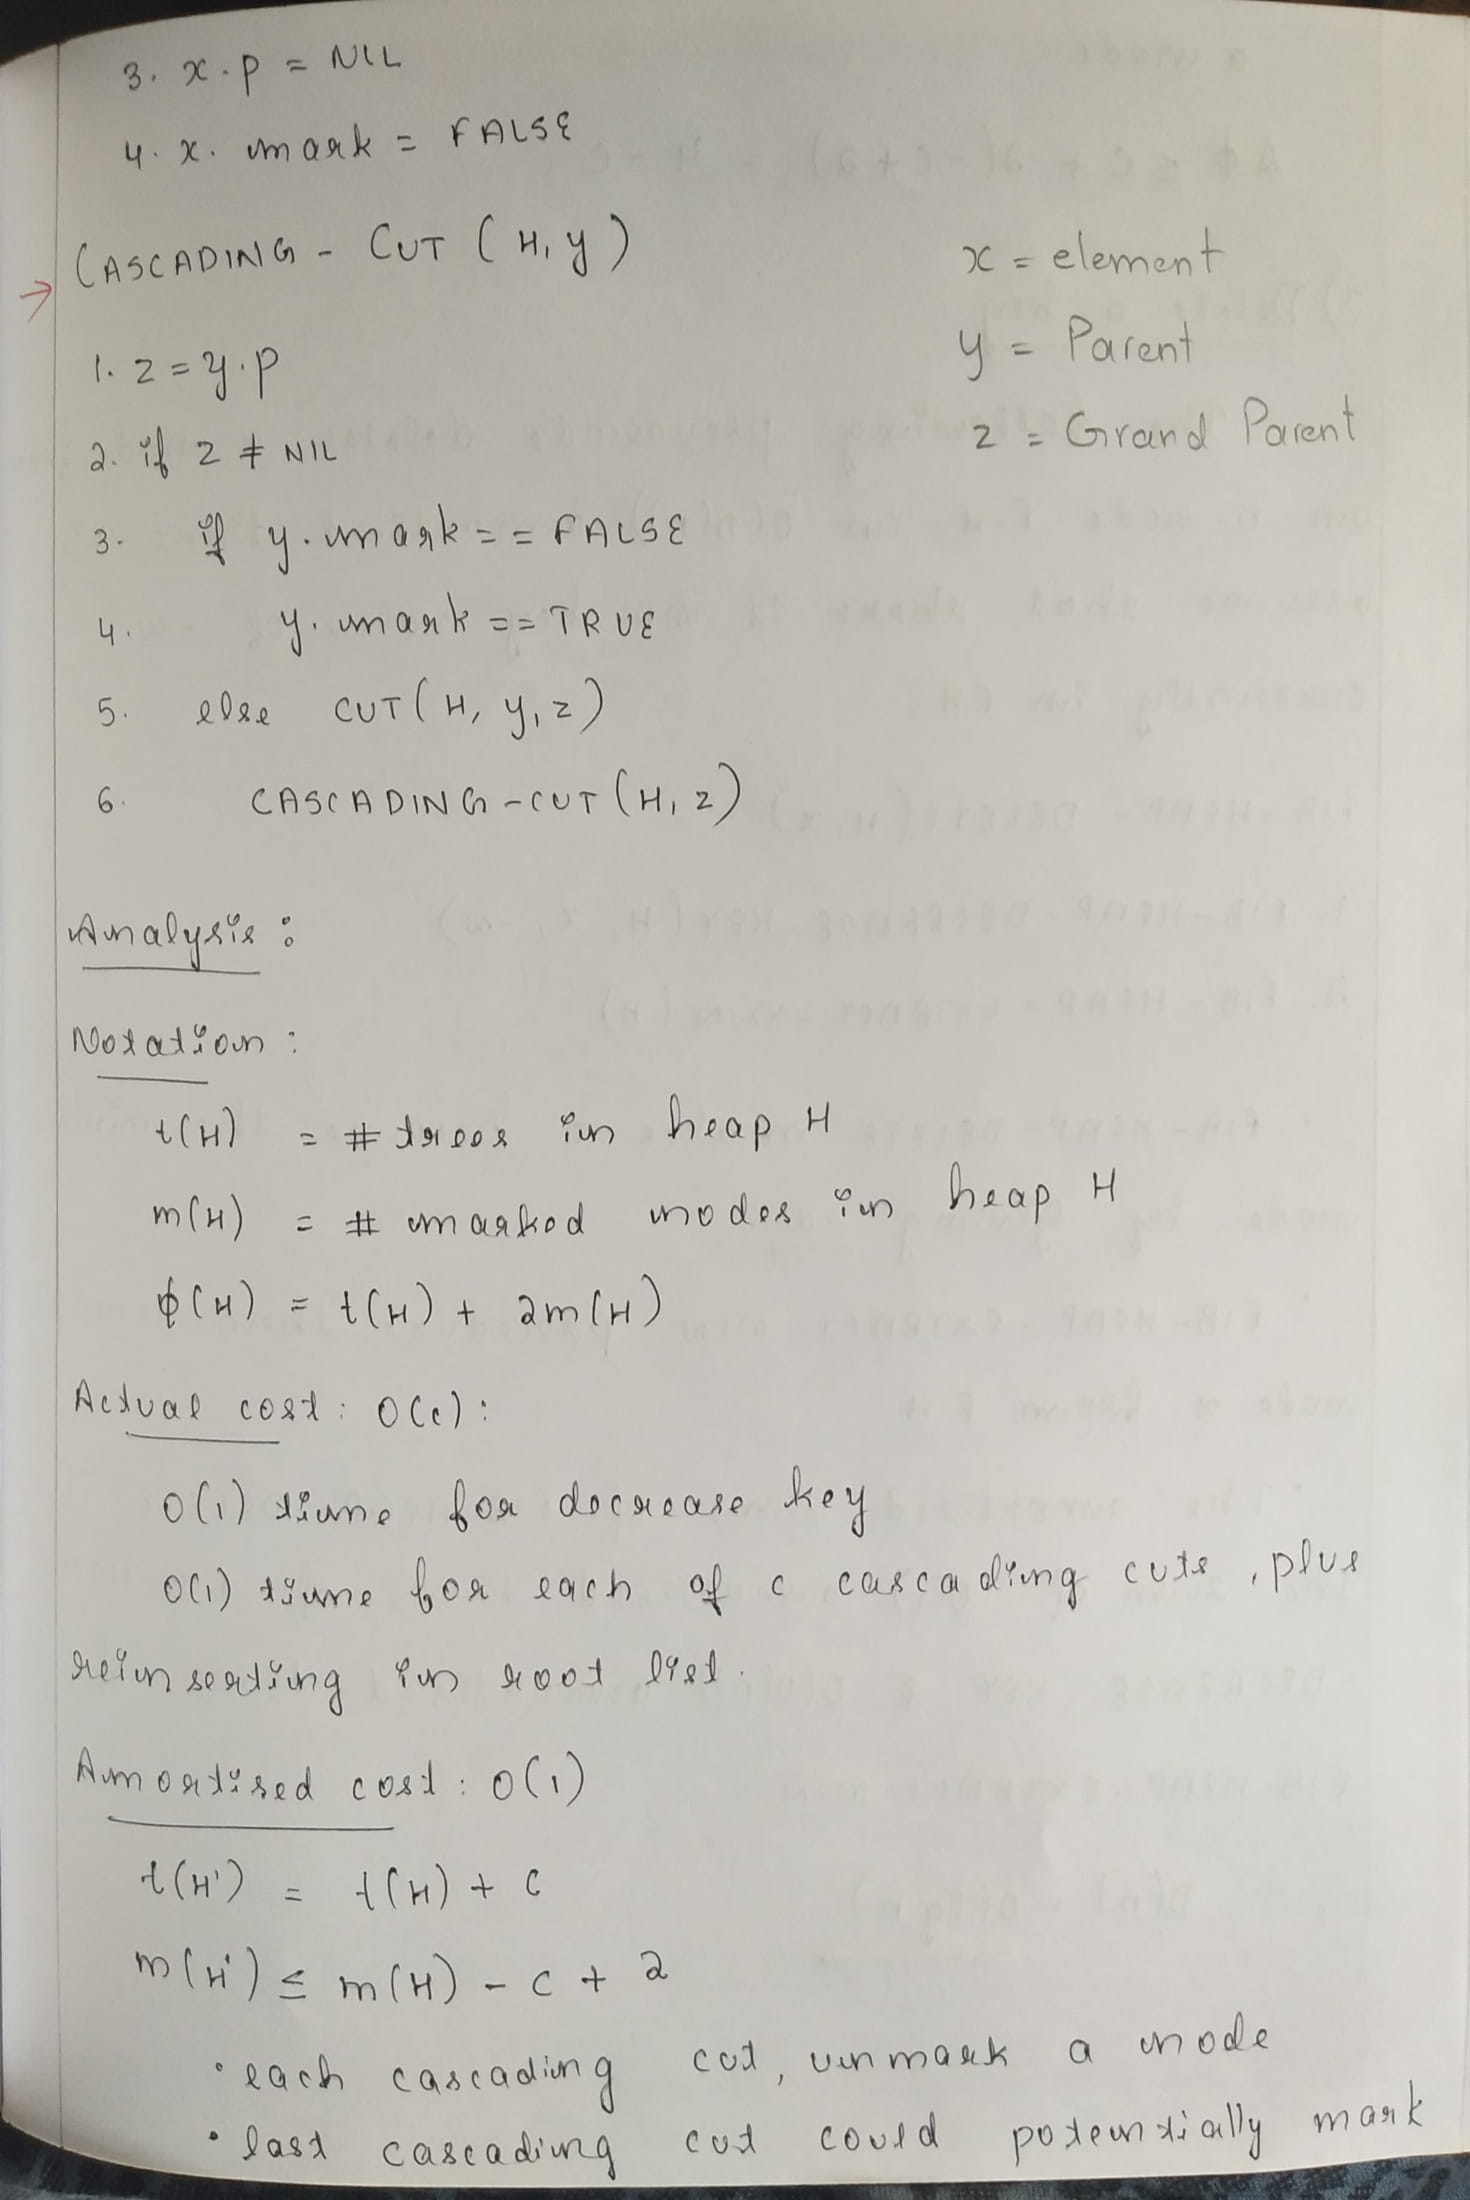 3. x.p = NIL
4. x. mark = FALSE
CASCADING - CUT (H, y)
x = element
y = Parent
z = Grand Parent
1. z = y.p
2. if z ≠ NIL
3. if y. mark == FALSE
4. y. mark == TRUE
5. else CUT(H, y, z)
6. CASCADING-CUT(H, z)
Analysis :
Notation :
t(H) = # trees in heap H
m(H) = # marked nodes in heap H
ϕ(H) = t(H) + 2m(H)
Actual cost : O(c) :
O(1) time for decrease key
O(1) time for each of c cascading cuts, plus
reinserting in root list.
Amortised cost : O(1)
t(H') = t(H) + c
m(H') ≤ m(H) - c + 2
• each cascading cut, unmark a node
• last cascading cut could potentially mark